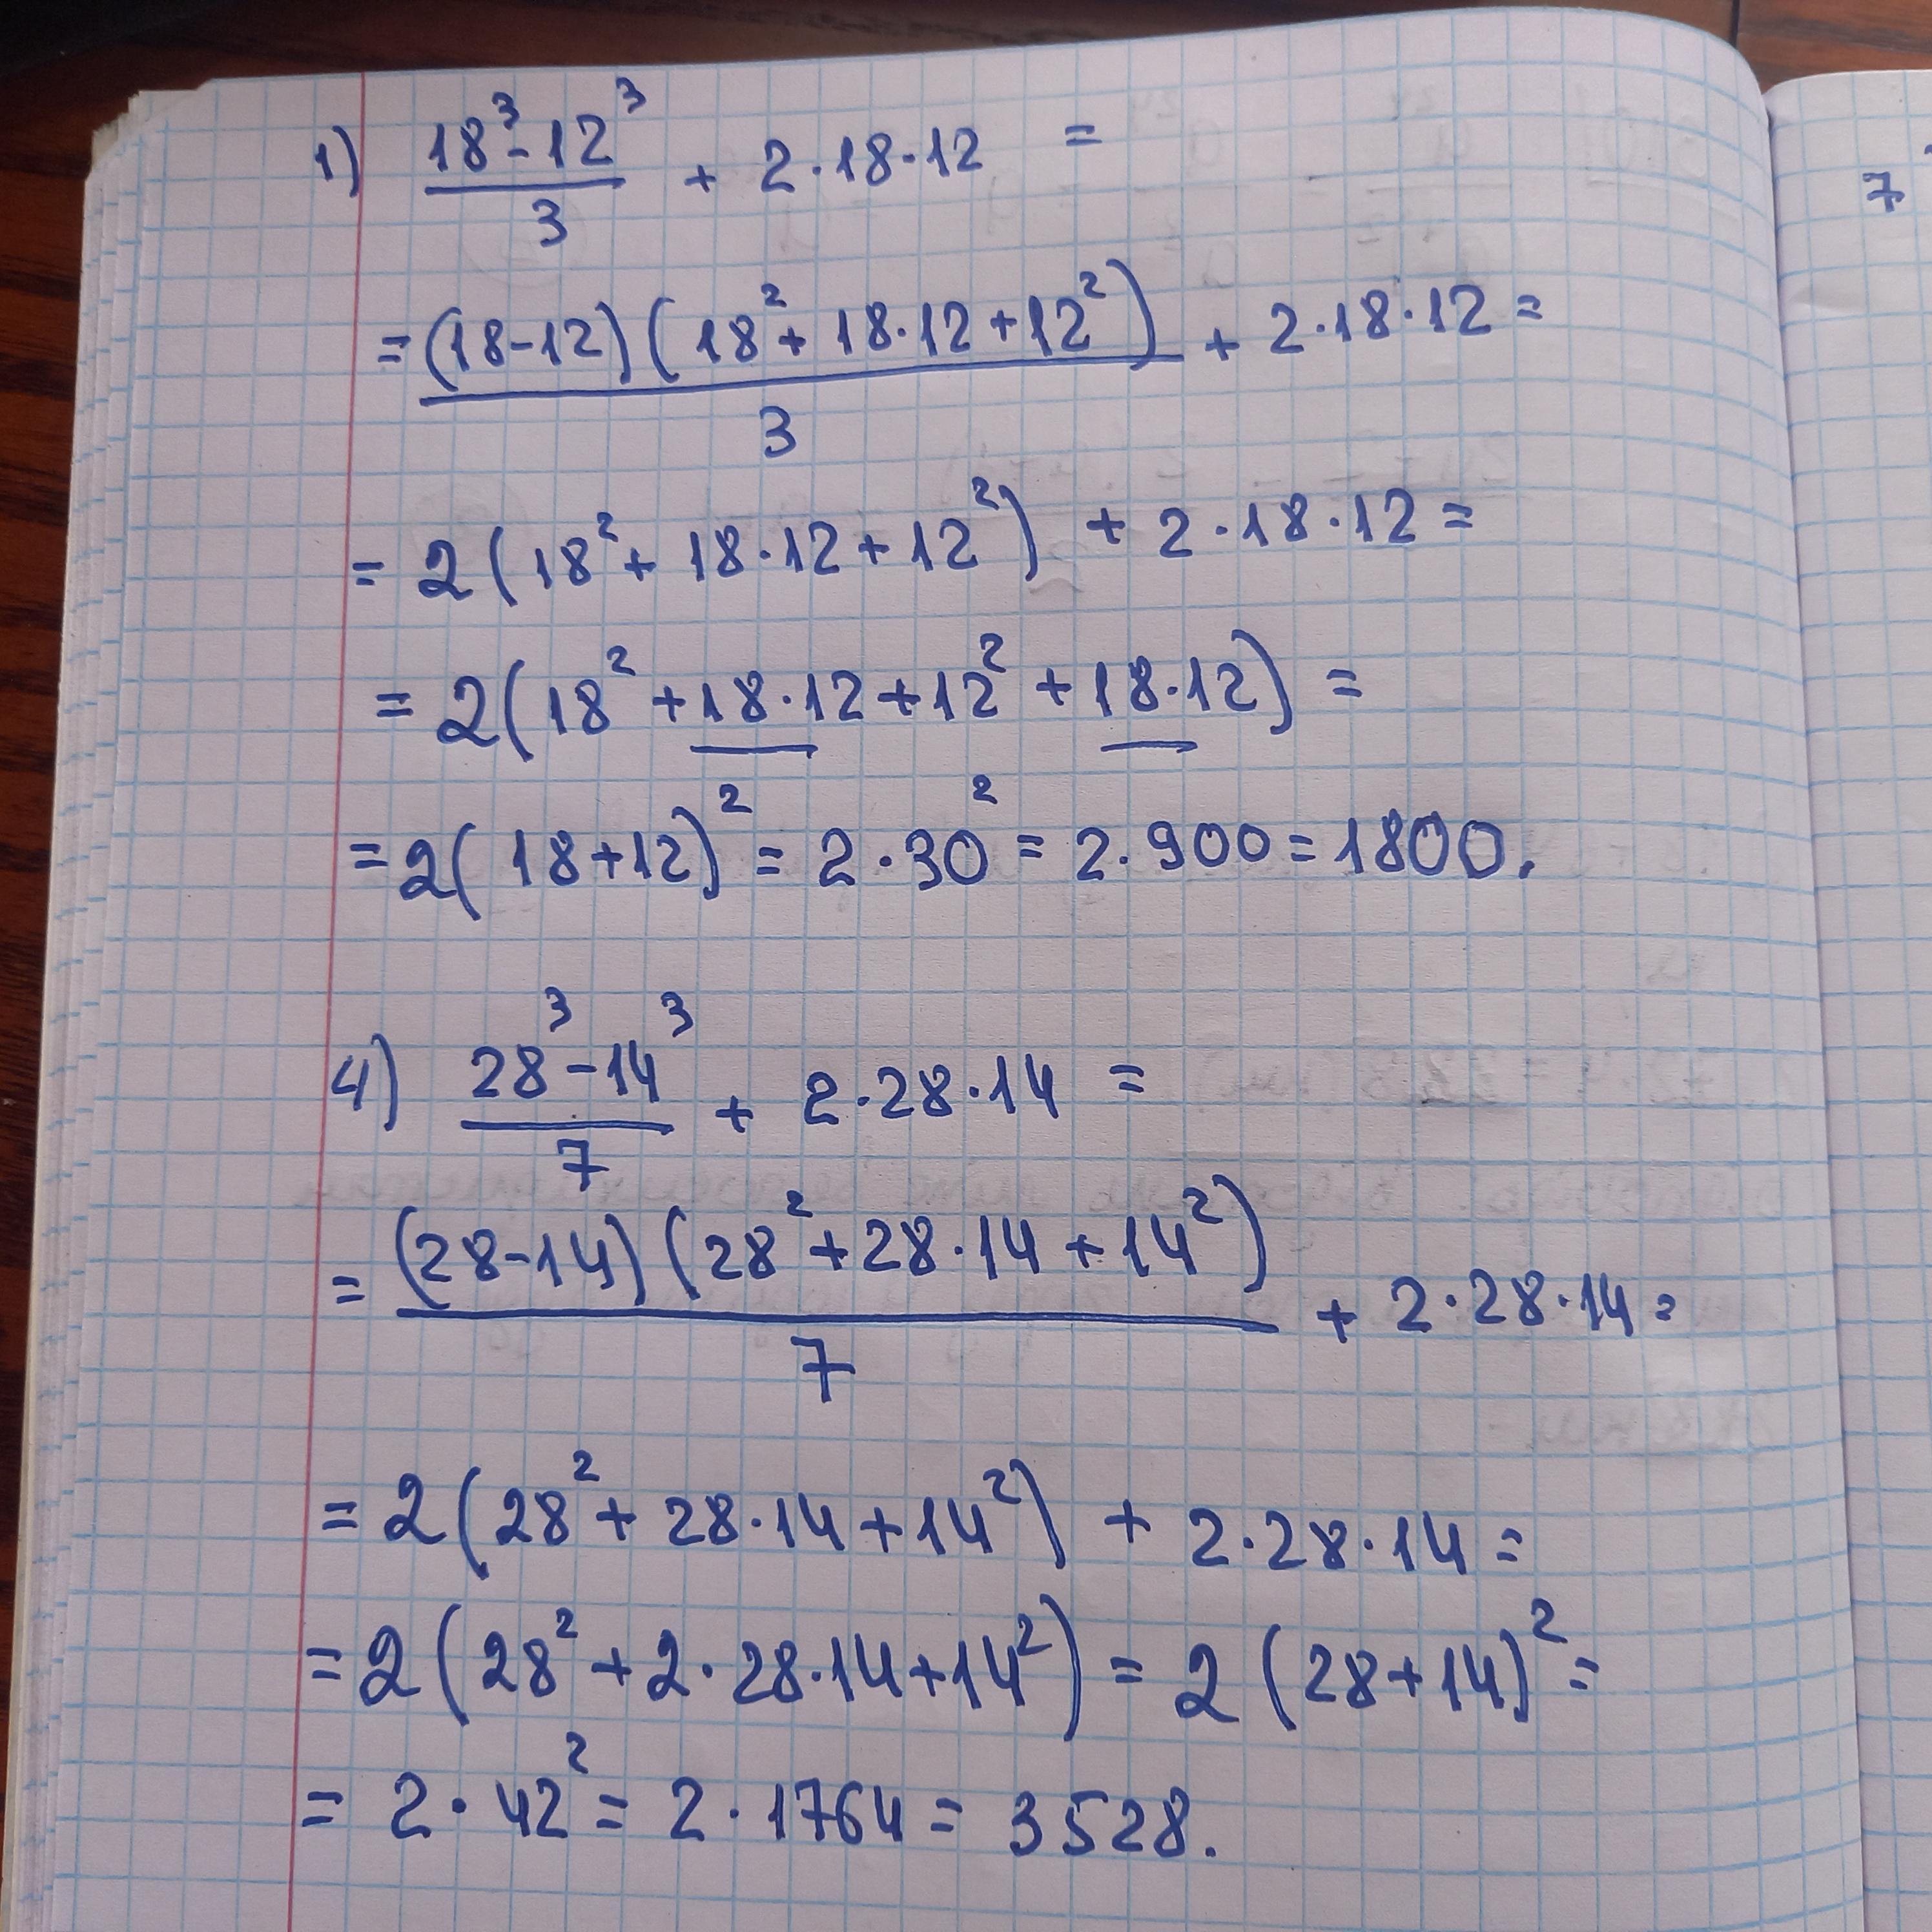 1) (18³-12³)/3 + 2·18·12 =
= (18-12)(18²+18·12+12²)/3 + 2·18·12 =
= 2(18²+18·12+12²) + 2·18·12 =
= 2(18²+18·12+12²+18·12) =
= 2(18+12)² = 2·30² = 2·900 = 1800.
4) (28³-14³)/7 + 2·28·14 =
= (28-14)(28²+28·14+14²)/7 + 2·28·14 =
= 2(28²+28·14+14²) + 2·28·14 =
= 2(28²+2·28·14+14²) = 2(28+14)² =
= 2·42² = 2·1764 = 3528.
7